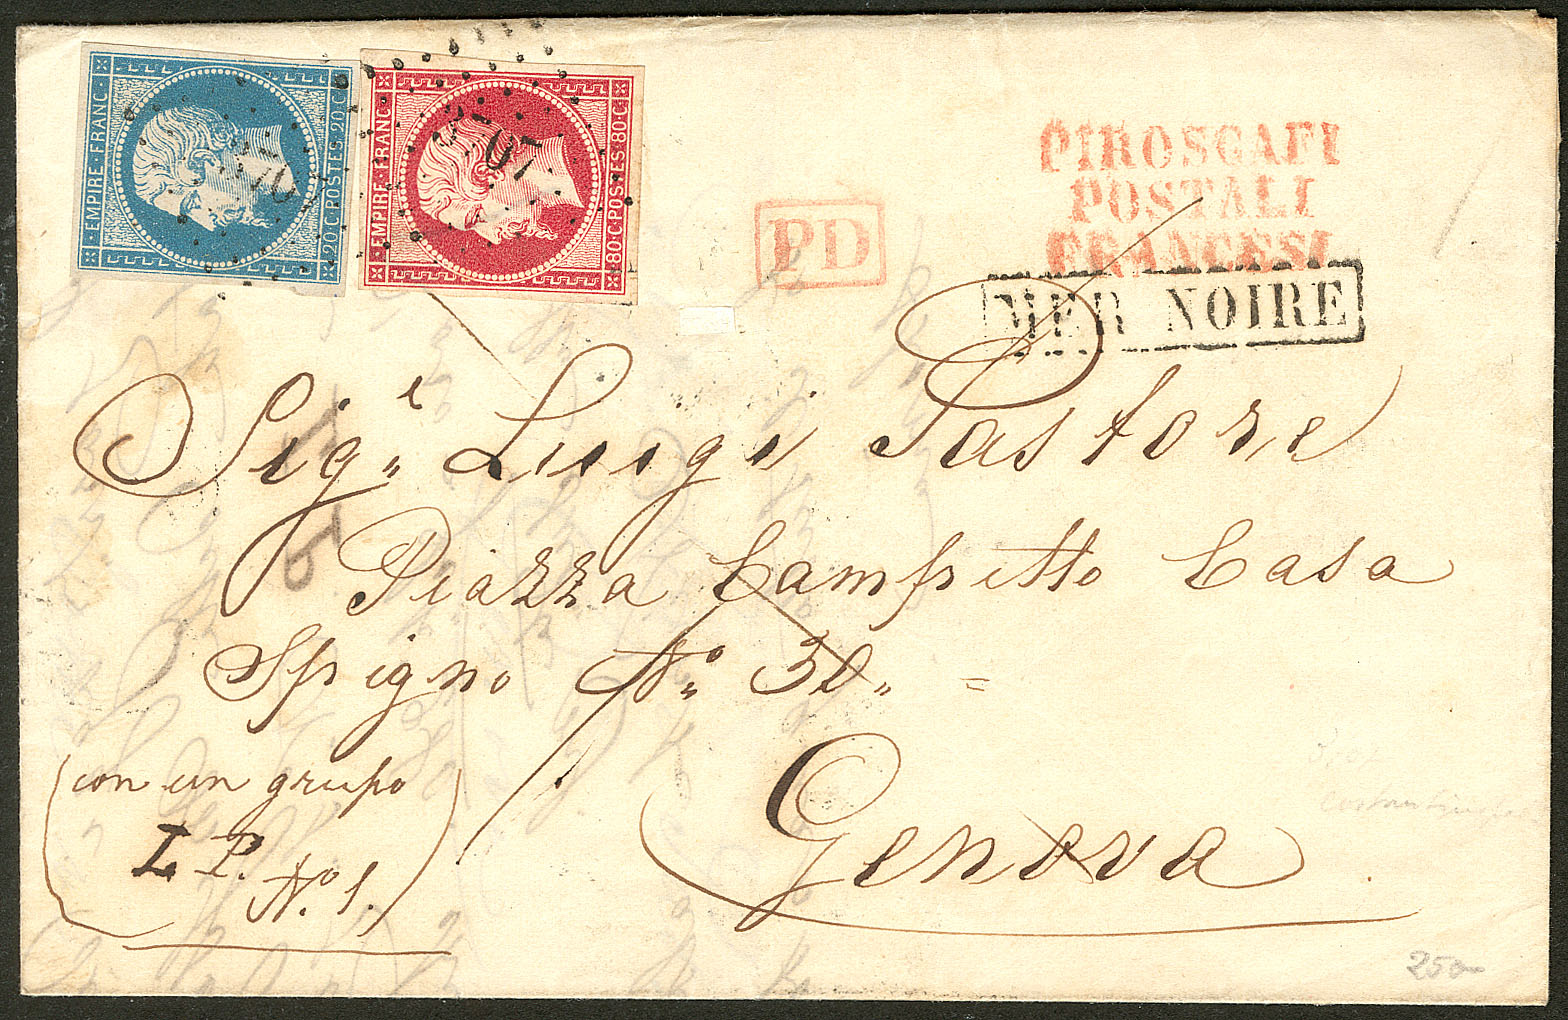 EMPIRE · FRANC ·
20 · C · POSTES · 20 · C ·
EMPIRE · FRANC ·
80 · C · POSTES · 80 · C ·
3707
PD
PIROSGAFI
POSTALI
FRANCESI
MER NOIRE
Sig.ᵉ Luigi Pastore
Piazza Campetto Casa
Spigno N.º 30. =
Genova
(con un gruppo
L P.
Nº 1.)
250-